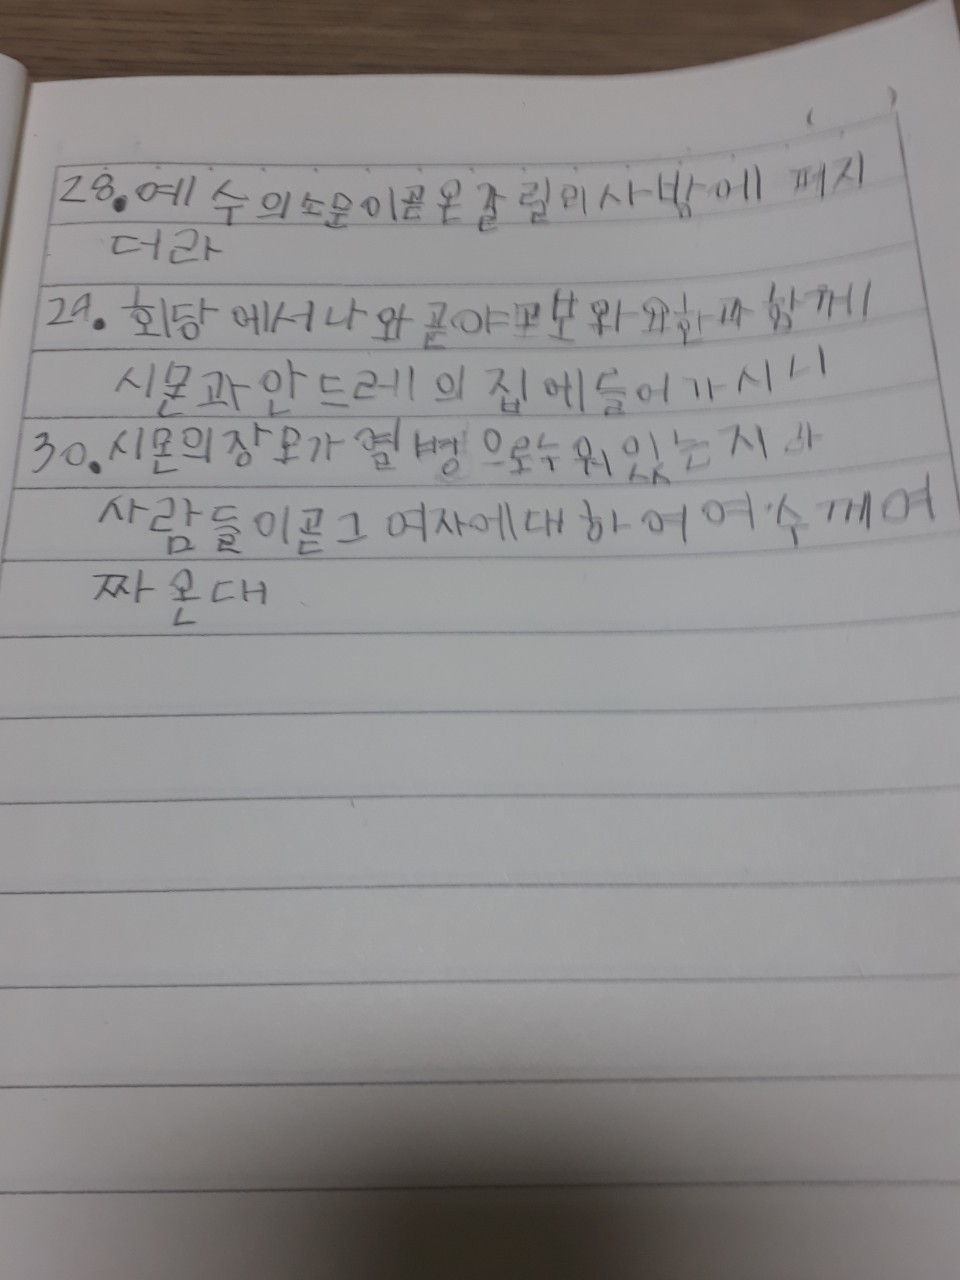 28. 예수의소문이곧온갈릴미사방에 퍼지
더라
29. 회당에서나와곧야고보와요한과함께
시몬과안드레의집에들어가시니
30. 시몬의장모가열병으로누워있는지라
사람들이곧그여자에대하여여수께여
짜온대